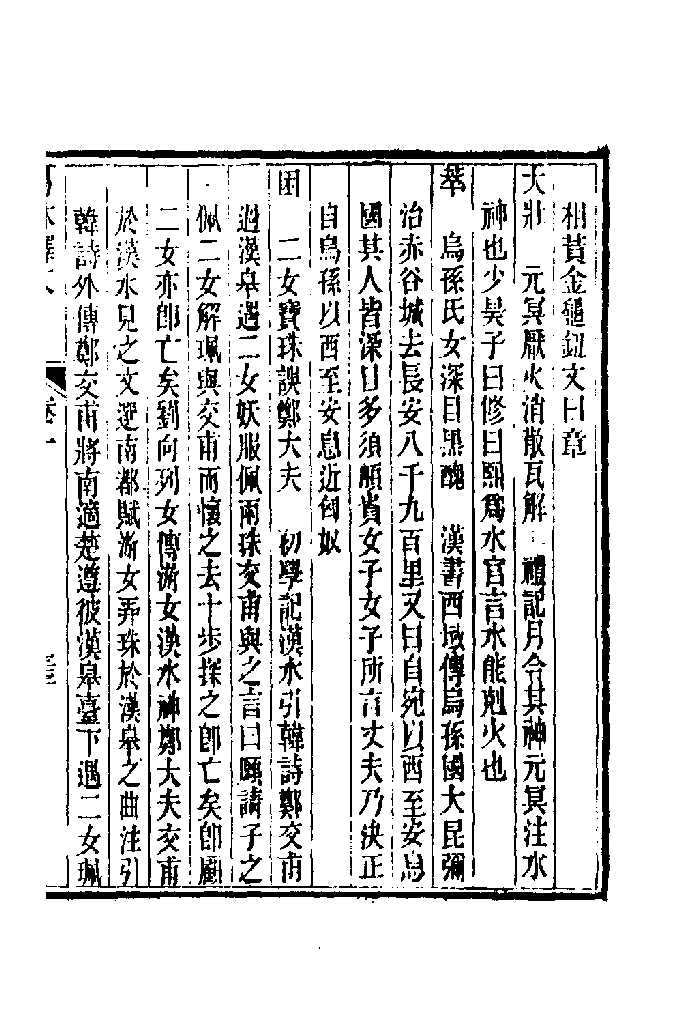 相黃金龜鈕文曰章
大壯　元冥厭火消散瓦解　禮記月令其神元冥注水
神也少昊子曰修曰熙爲水官言水能剋火也
萃　烏孫氏女深目黑醜　漢書西域傳烏孫國大昆彌
治赤谷城去長安八千九百里又曰自宛以西至安息
國其人皆深目多須䫇貴女子女子所言丈夫乃決正
自烏孫以西至安息近匈奴
困　二女寶珠誤鄭大夫　初學記漢水引韓詩鄭交甫
過漢皋遇二女妖服佩兩珠交甫與之言曰願請子之
佩二女解珮與交甫而懷之去十步探之卽亡矣卽顧
二女亦卽亡矣劉向列女傳游女漢水神鄭大夫交甫
於漢水見之文選南都賦游女弄珠於漢皋之曲注引
韓詩外傳鄭交甫將南適楚遵彼漢皋臺下遇二女珮